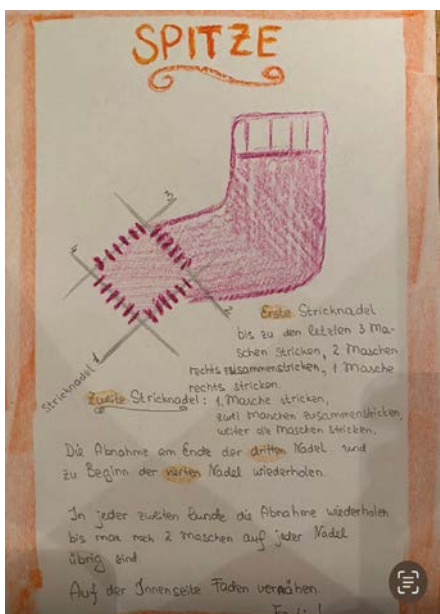 SPITZE
3
4
2
Stricknadel 1
Erste Stricknadel
bis zu den letzten 3 Ma-
schen stricken, 2 Maschen
rechts zusammenstricken, 1 Masche
rechts stricken.
Zweite Stricknadel: 1. Masche stricken,
zwei Maschen zusammenstricken,
weiter alle Maschen stricken.
Die Abnahme am Ende der dritten Nadel und
zu Beginn der vierten Nadel wiederholen.
In jeder zweiten Runde die Abnahme wiederholen
bis man noch 2 Maschen auf jeder Nadel
übrig sind
Auf der Innenseite Faden vernähen.